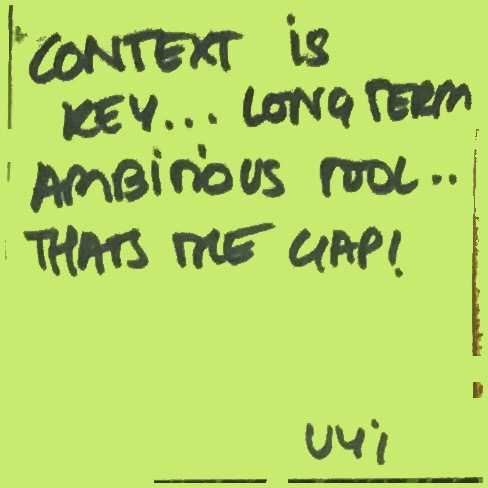 CONTEXT is
KEY... LONG TERM
AMBiTiOUS TOOL..
THATS THE GAP!
UYi